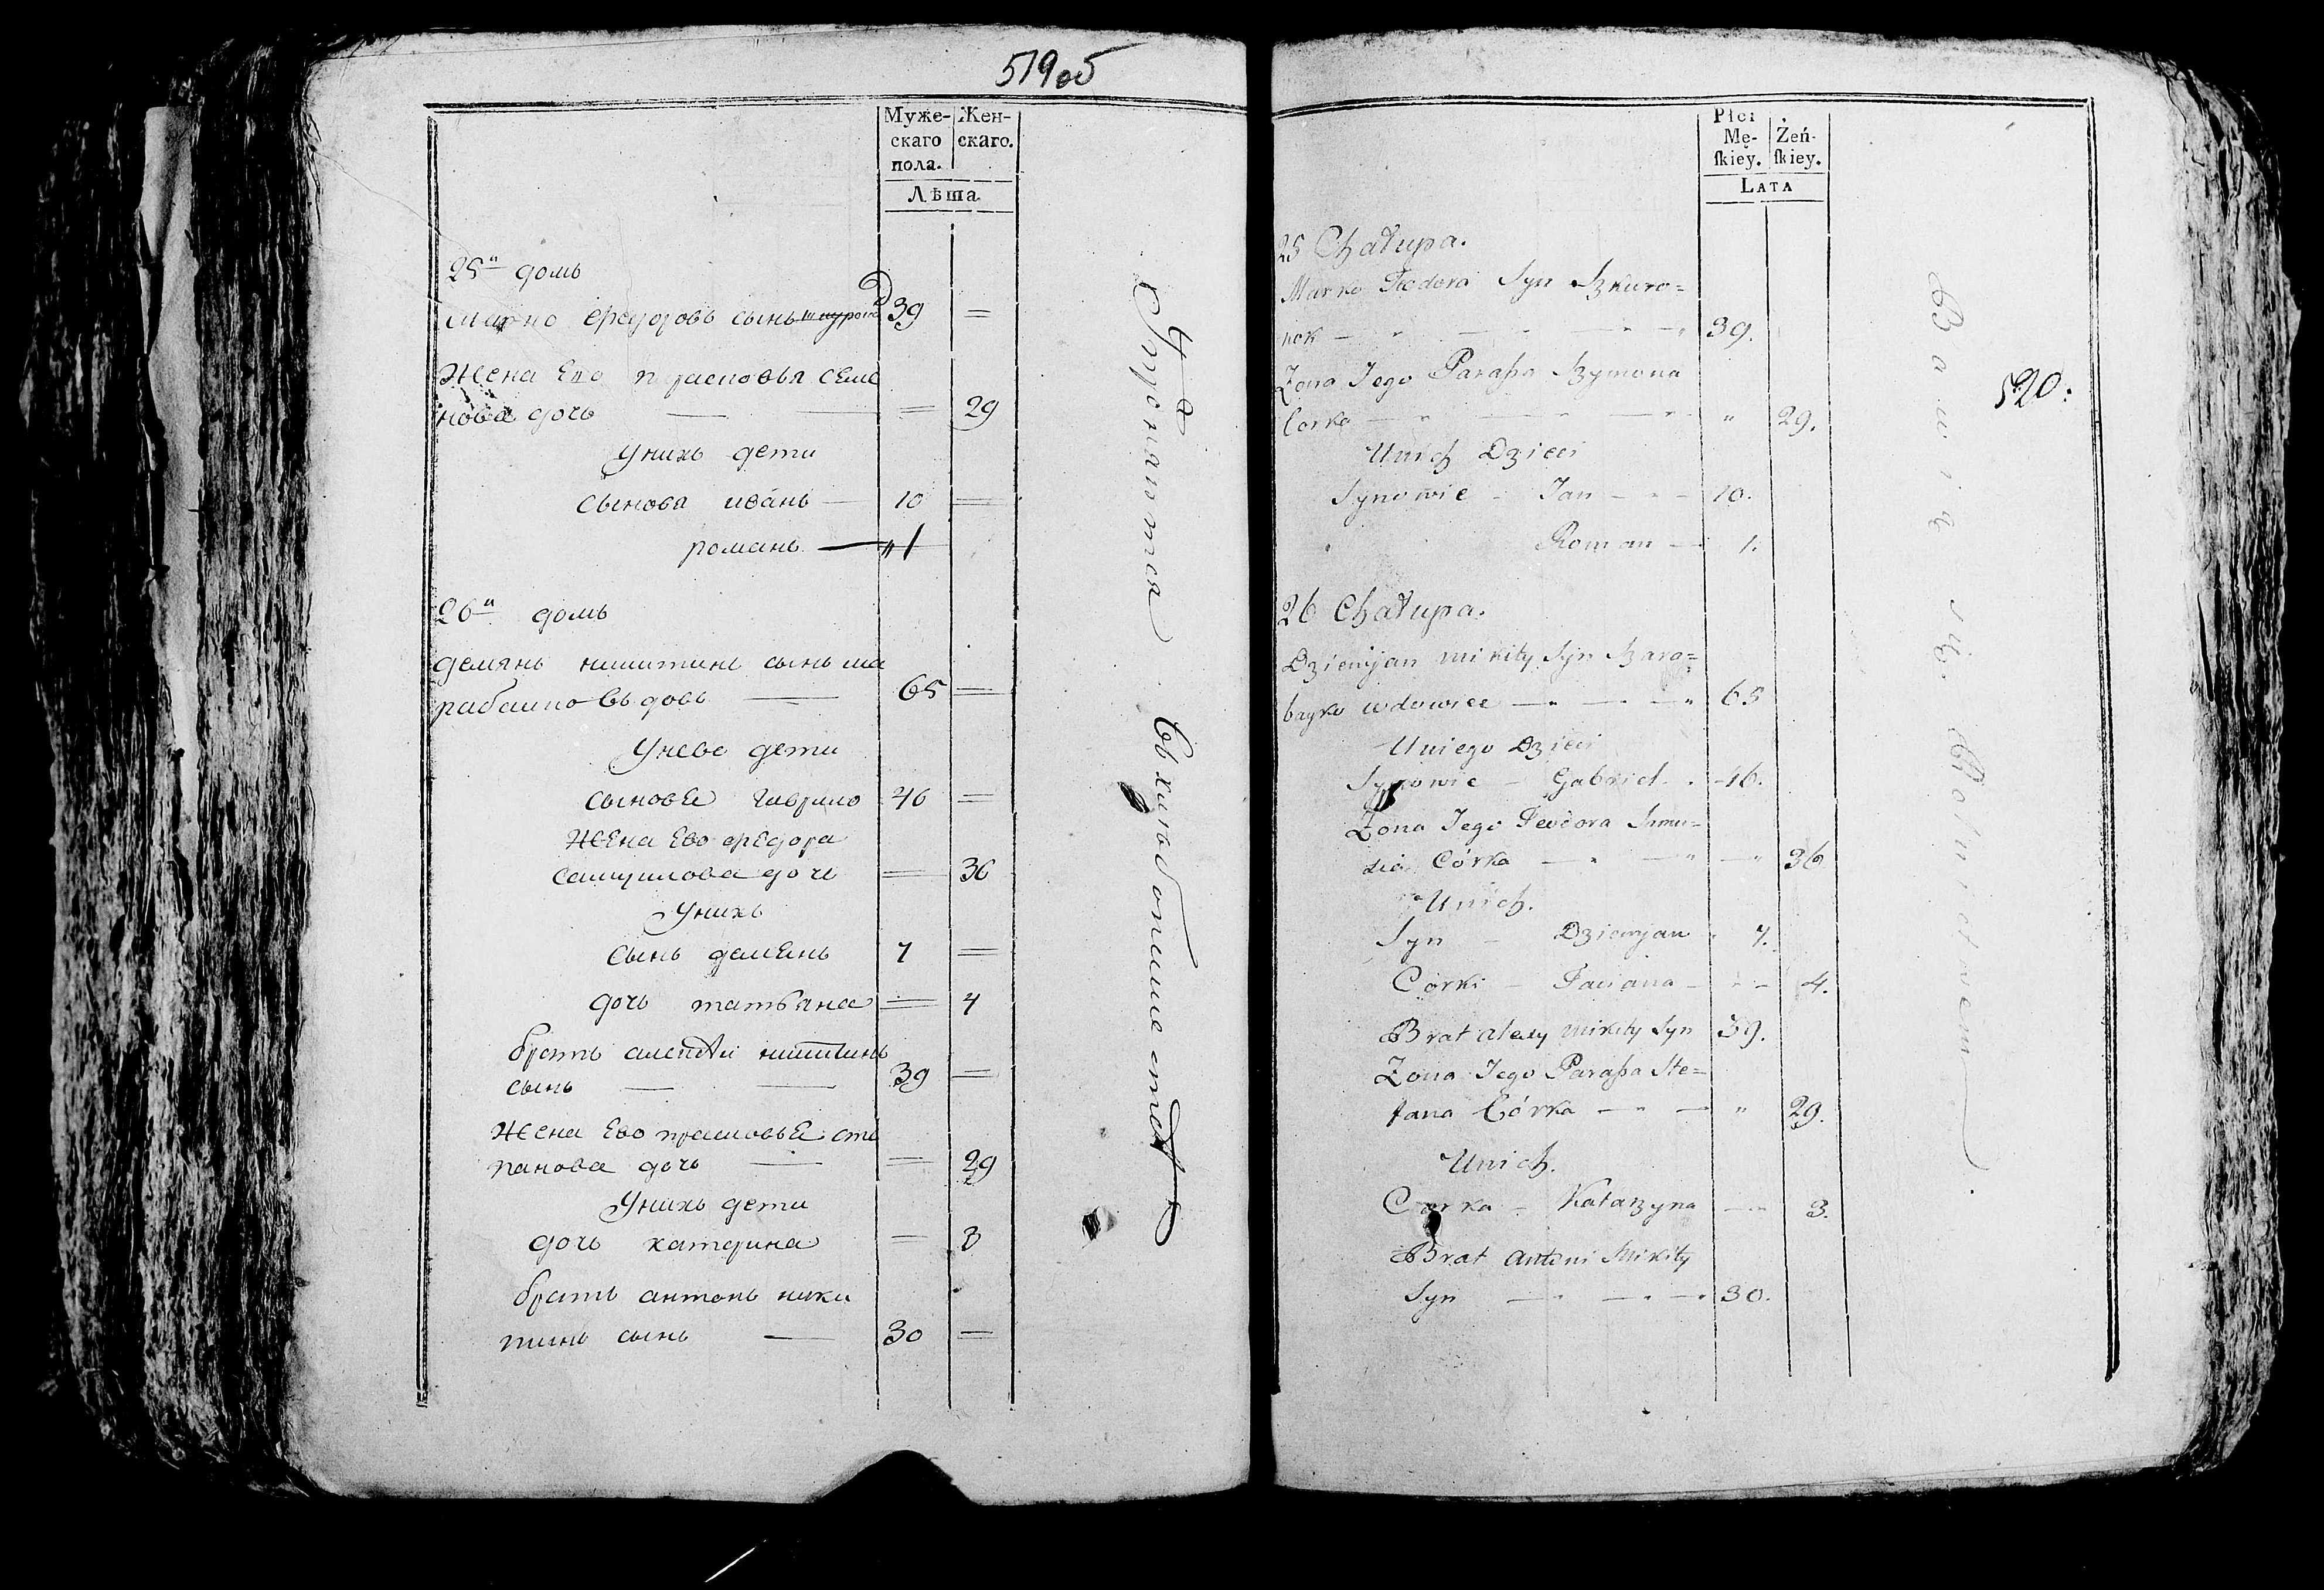 519об
Муже- Жен-
скаго скаго.
пола.
Лѣта
25й домъ
Марко Ѳедоровъ сынъ шкуроно 39 =
Жена Ево прасковья семе
нова дочь — — = 29
Унихъ дети
Сыновя иванъ — 10 =
романъ — 1
26й домъ
демянъ никитинъ сынъ ша
рабайко вдовъ — 65 =
Унево дети
сыновья гаврило 46 =
Жена Ево Ѳедора
самуилова дочь = 36
Унихъ
Сынъ демянъ 7 =
дочь татьяна = 4
братъ алексѣй никитинъ
сынъ — — 39 =
Жена Ево прасковья сте
панова дочь — = 29
Унихъ дети
дочь катерина = 3
братъ антонъ ники
тинъ сынъ — 30 =
Упражняются
въ хлебопашестве
Płci
Mę- Żeń-
ſkiey. ſkiey.
LATA
25 Chałupa.
Marko Fiedora Syn Szkuro=
nok — 39.
Zona Jego Paraſka Szymona
Corka — " 29.
Unich Dzieci
Synowie - Jan - 10.
Roman — 1.
26 Chałupa.
Dziemjan Mikity Syn Szara=
bayko wdowiec — 65
Uniego Dzieci
Synowie - Gabriel . 46.
Zona Jego Feodora Samu=
Córka — 36
Unich.
Syn - Dziemjan 7.
Corki - Taciana - 4.
Brat Alexy Mikity Syn 39.
Zona Jego Paraſka Ste=
fana Córka — " 29.
Unich.
Corka - Katarzyna — 3.
Brat Antoni Mikity
Syn — 30.
Bawią się Rolnictwem
520.